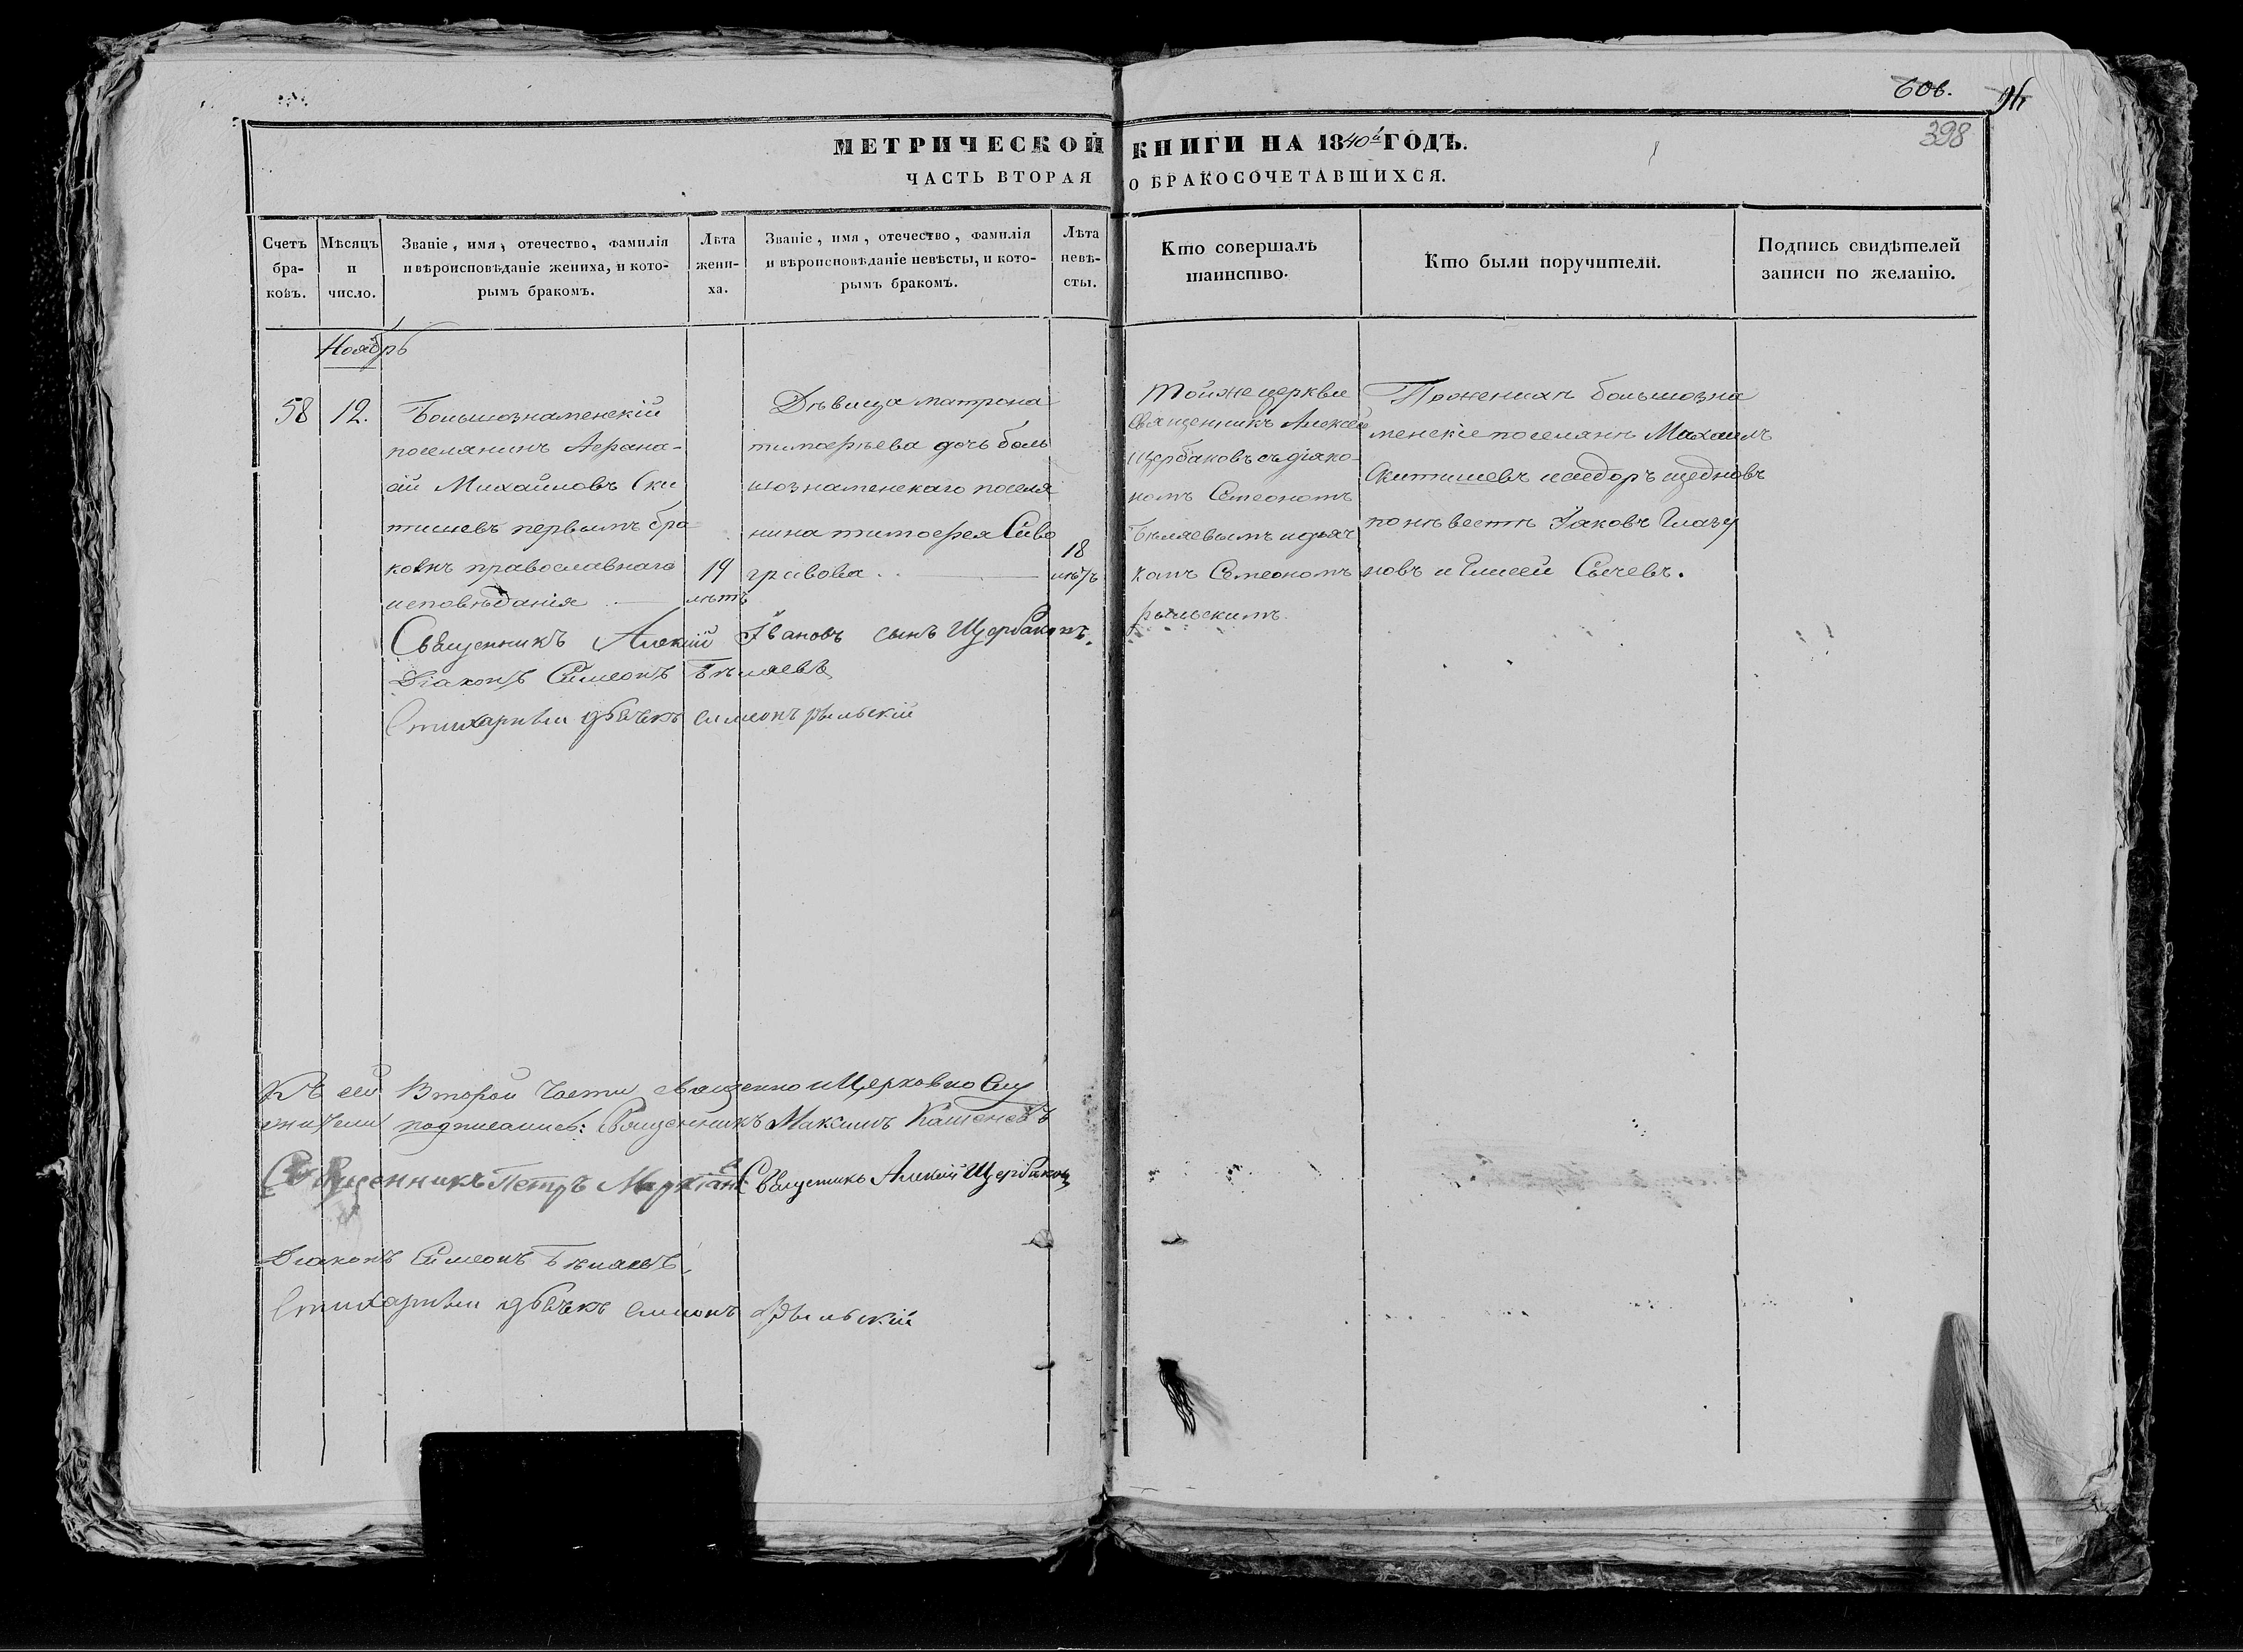 606.
398
МЕТРИЧЕСКОЙ КНИГИ НА 1840й ГОДЪ.
ЧАСТЬ ВТОРАЯ О БРАКОСОЧЕТАВШИХСЯ.
Счетъ
бра-
ковъ.
Мѣсяцъ
и
число.
Званіе, имя, отечество, фамилія
и вѣроисповѣданіе жениха, и кото-
рымъ бракомъ.
Лѣта
жени-
ха.
Званіе, имя, отечество, фамилія
и вѣроисповѣданіе невѣсты, и кото-
рымъ бракомъ.
Лѣта
невѣ-
сты.
Кто совершалъ
таинство.
Кто были поручители.
Подпись свидѣтелей
записи по желанію.
Ноябрь
58
12.
Большознаменскій
поселянинъ Афана-
сій Михайловъ Ски
тишевъ первымъ бра
комъ православнаго
исповѣданія
19
лѣтъ
Дѣвица матрона
тимофѣева дочь боль
шознаменскаго поселя
нина тимофея Сиво
гривова
18
лѣтъ
Тойже церкви
Священникъ Алексей
щербаковъ съ діяко-
номъ Семеономъ
Бѣляевымъ и дьяч
комъ Семеономъ
рыльскимъ
По женихѣ большозна
менскіе поселянѣ Михаилъ
Скитишевъ исидоръ щедновъ
по невестѣ Іаковъ Глазу
новъ и Елисей Сычевъ.
Священникъ Алексій Івановъ сынъ Щербаковъ.
Діаконъ Симеонъ Бѣляевъ
Стихарный дьячекъ симеонъ рыльскій
Къ сей Второй Части священно и Церковно Слу
жители подписались: Священникъ Максимъ Кашеневъ
Священникъ Петръ
Священникъ Алексій Щербаковъ
Діаконъ Симеонъ Бѣляевъ
Стихарный дьячекъ симеонъ Рыльскій